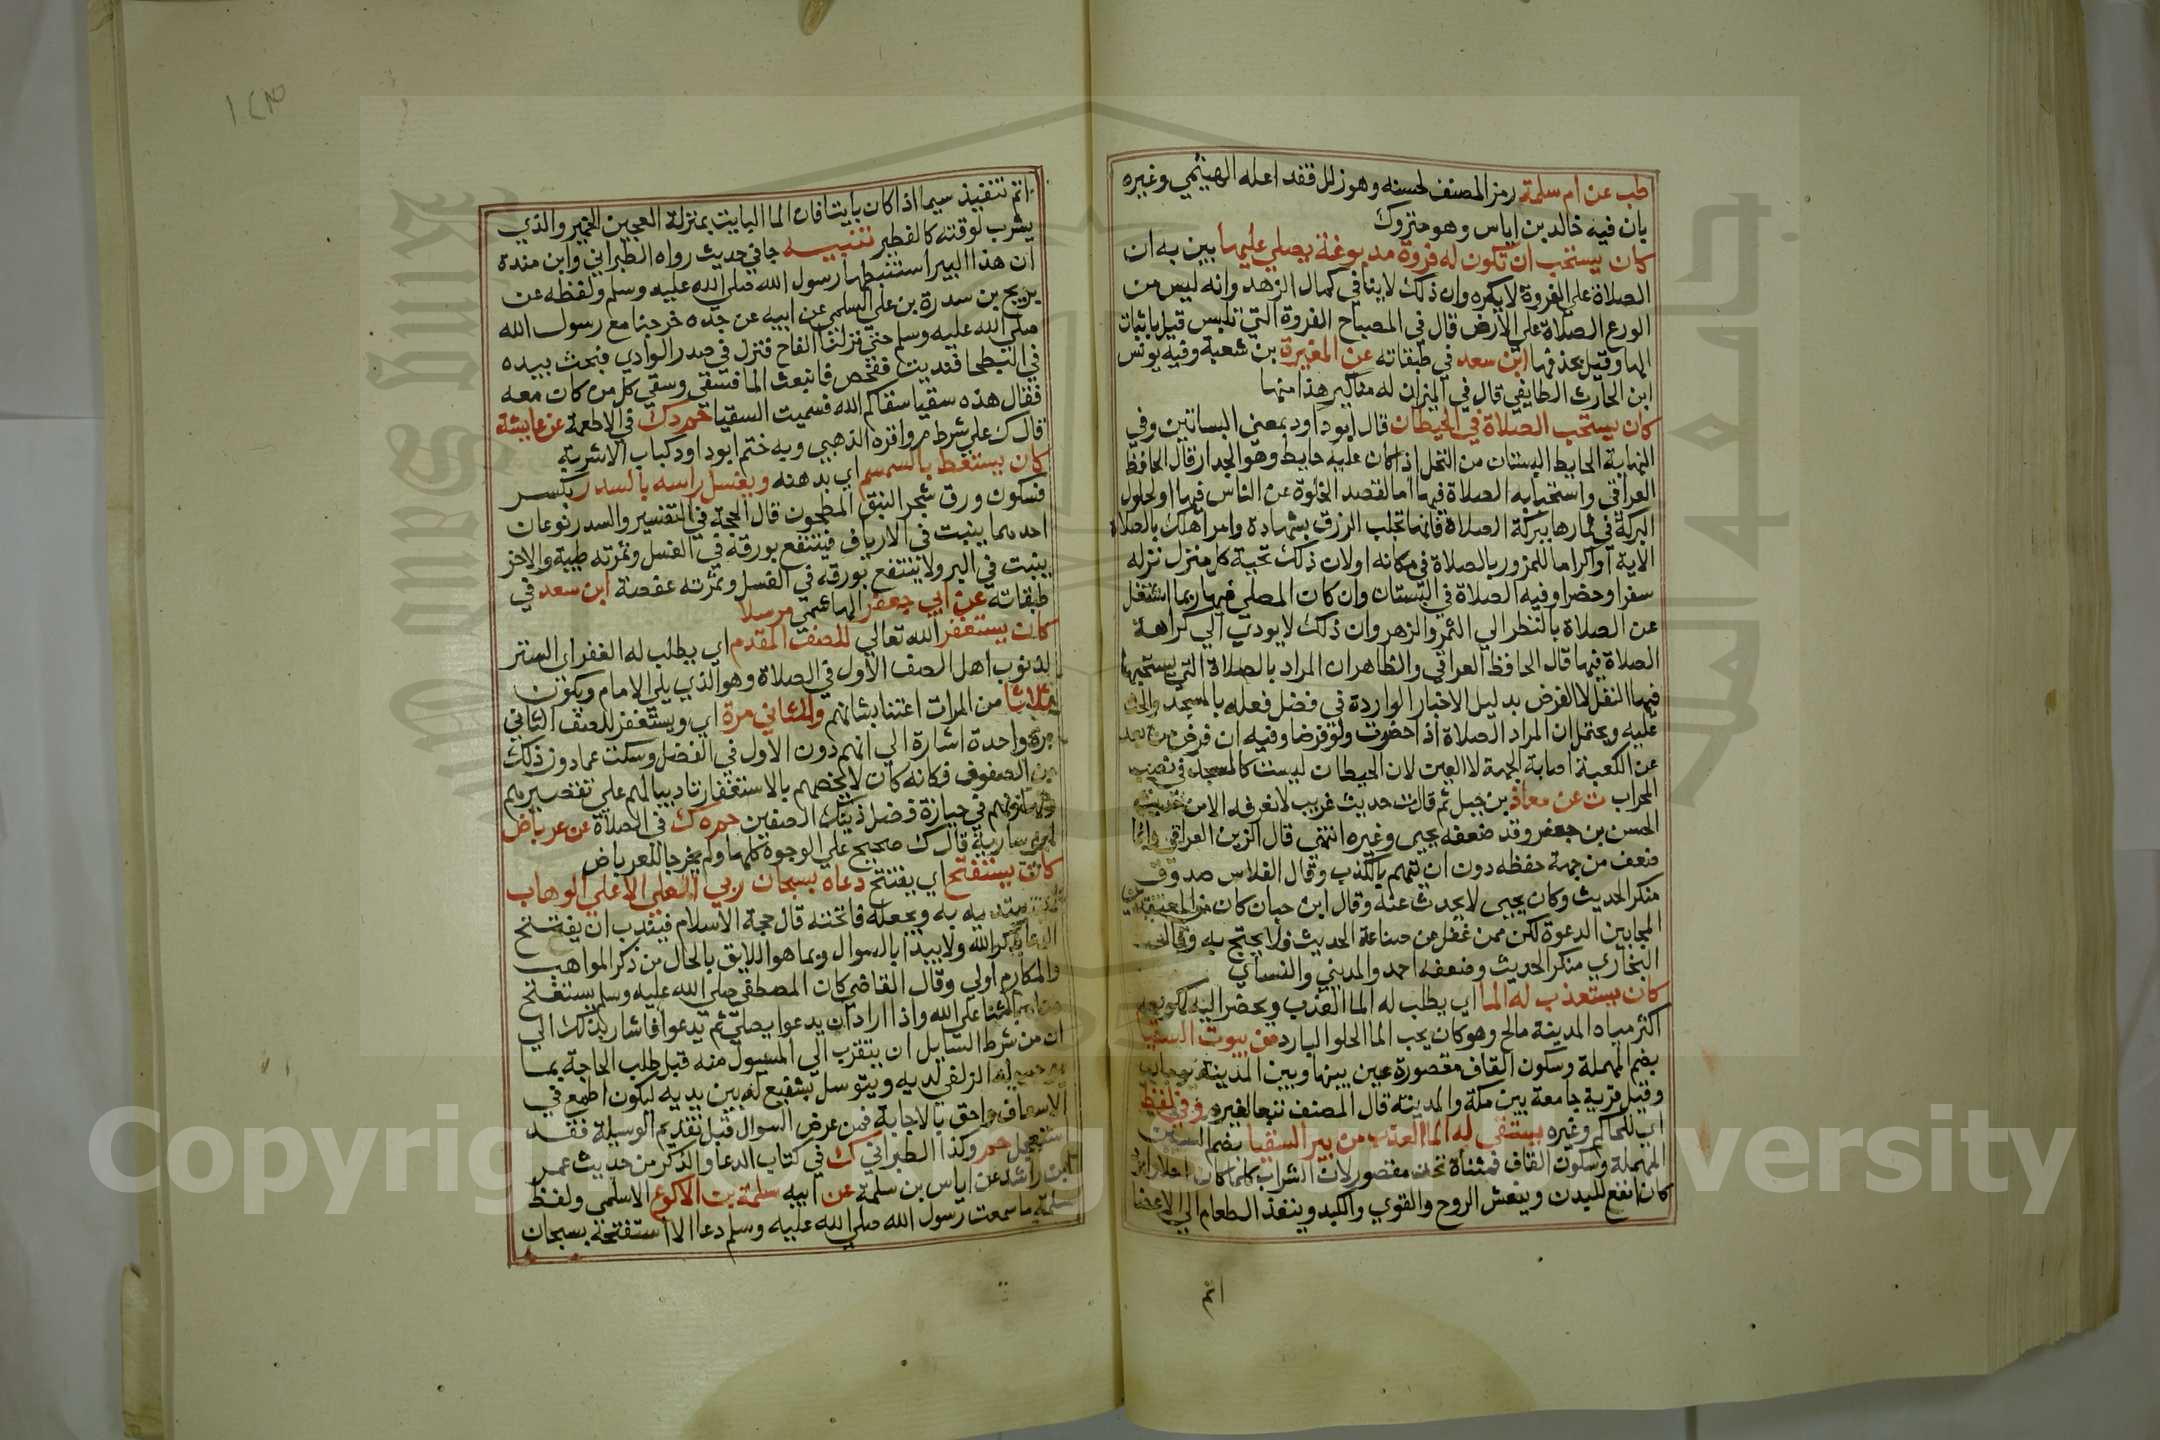 طب عن ام سلمة رمز المصنف لحسنه وهو زلل فقد اعله الهيثمي وغيره
بان فيه خالد بن اياس وهو متروك
كان يستحب ان تكون له فروة مدبوغة يصلي عليها بين به ان
الصلاة علي الفروة لا يكره وان ذلك لا ينافي كمال الزهد وانه ليس من
الورع الصلاة علي الارض قال في المصباح الفروة التي تلبس قيل باثبات
الها وقيل بحذفها ابن سعد في طبقاته عن المغيرة بن شعبة وفيه يونس
ابن الحارث الطايفي قال في الميزان له مناكير هذا منها
كان يستحب الصلاة في الحيطان قال ابو داود بمعني البساتين وفي
النهاية الحايط البستان من النخل اذا كان عليه حايط وهو الجدار قال الحافظ
العراقي واستحبابه الصلاة فيها اما لقصد الخلوة عن الناس فيها او لحلول
البركة في ثمارها ببركة الصلاة فانها تجلب الرزق بشهادة وامر اهلك بالصلاة
الاية او اكراما للمزور بالصلاة في مكانه او لان ذلك تحية كل منزل نزله
سفرا وحضرا وفيه الصلاة في البستان وان كان المصلي فيها ربما اشتغل
عن الصلاة بالنظر الي الثمر والزهر وان ذلك لا يودي الي كراهة
الصلاة فيها قال الحافظ العراقي والظاهر ان المراد بالصلاة التي يستحبها
فيها النفل لا الفرض بدليل الاخبار الواردة في فضل فعله بالمسجد والحث
عليه ويحتمل ان المراد الصلاة اذا حضرت ولو فرضا وفيه ان فرض من بعد
عن الكعبة اصابة الجهة لا العين لان الحيطان ليست كالمسجد في نصب
المحراب ت عن معاذ بن جبل ثم قال ت حديث غريب لا نعرفه الا من حديث
الحسن بن جعفر وقد ضعفه يحيي وغيره انتهي قال الزين العراقي وانما
ضعف من جهة حفظه دون ان يتهم بالكذب وقال الفلاس صدوق
منكر الحديث وكان يحيي لا يحدث عنه وقال ابن حبان كان من المتعبدين
المجابين الدعوة لكن ممن غفل عن صناعة الحديث فلا يحتج به وقال
البخاري منكر الحديث وضعفه احمد والمديني والنساي
كان يستعذب له الما اي يطلب له الما العذب ويحضر اليه لكون
اكثر مياه المدينة مالح وهو كان يحب الما الحلو البارد من بيوت السقيا
بضم المهملة وسكون القاف مقصورة عين بينها وبين المدينة يومان
وقيل قرية جامعة بين مكة والمدينة قال المصنف تبعا لغيره وفي لفظ
اي للحاكم وغيره يستقي له الما العذب من بير السقيا بضم السين
المهملة وسكون القاف فمثناة تحت مقصور لان الشراب كلما كان احلا
كان انفع للبدن وينعش الروح والقوي والكبد وينفذ الطعام الي الاعضا
اتم
اتم تنفيذ سيما اذا كان بايتا فان الما البايت بمنزلة العجين الخمير والذي
يشرب لوقته كالفطير تنبيه جا في حديث رواه الطبراني وابن مندة
ان هذا البير استنبطها رسول الله صلي الله عليه وسلم ولفظه عن
بن سدرة بن علي السلمي عن ابيه عن جده خرجنا مع رسول الله
صلي الله عليه وسلم حتي نزلنا القاح فنزل في صدر الوادي فبحث بيده
في البطحا فنديت ففحص فانبعث الما فسقي وسقي كل من كان معه
فقال هذه سقيا سقاكم الله فسميت السقيا حم د ك في الاطعمة عن عايشة
قال ك علي شرط م واقره الذهبي وبه ختم ابو داود كتاب الاشربة
كان يستعط بالسمسم اي بدهنه ويغسل راسه بالسدر بكسر
فسكون ورق شجر النبق المطحون قال الحجة في التفسير والسدر نوعان
احدهما ينبت في الارياف فينتفع بورقه في الغسل وثمرته طيبة والاخر
ينبت في البر ولا ينتفع بورقه في الغسل وثمرته عفصة ابن سعد في
طبقاته عن ابي جعفر الهاشمي مرسلا
كان يستغفر الله تعالي للصف المقدم اي يطلب له الغفر اي الستر
لذنوب اهل الصف الاول في الصلاة وهو الذي يلي الامام ويكون
ثلاثا من المرات اعتنا بشانهم وللثاني مرة اي ويستغفر للصف الثاني
مرة واحدة اشارة الي انهم دون الاول في الفضل وسكت عما دون ذلك
من الصفوف فكانه كان لا يخصهم بالاستغفار تاديبا لهم علي تقصيرهم
وتهاونهم في حيازة فضل ذينك الصفين حم ه ك في الصلاة عن عرباض
ابن سارية قال ك صحيح علي الوجوه كلها ولم يخرجا للعرباض
كان يستفتح اي يفتتح دعاه بسبحان ربي العلي الاعلي الوهاب
اي يبتديه به ويجعله فاتحته قال حجة الاسلام فيندب ان يفتتح
الدعا بذكر الله ولا يبدا بالسوال وبما هو اللايق بالحال من ذكر المواهب
والمكارم اولي وقال القاضي كان المصطفي صلي الله عليه وسلم يستفتح
دعاه بالثنا علي الله واذا اراد ان يدعوا يصلي ثم يدعوا فاشار بذلك الي
ان من شرط السايل ان يتقرب الي المسول منه قبل طلب الحاجة بما
يوجب له الزلفي لديه ويتوسل بشفيع له بين يديه ليكون اطمع في
الاسعاف واحق بالاجابة فمن عرض السوال قبل تقديم الوسيلة فقد
استعجل حم وكذا الطبراني ك في كتاب الدعا والذكر من حديث عمر
ابن راشد عن اياس بن سلمة عن ابيه سلمة بن الاكوع الاسلمي ولفظ
سلمة ما سمعت رسول الله صلي الله عليه وسلم دعا الا استفتحه بسبحان